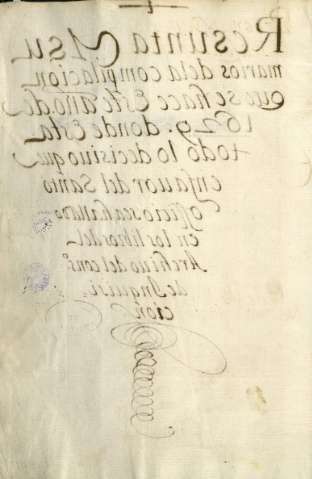 Resunta Y su
marios dela compilacion
que se haçe Este año. de
1629. donde esta
todo lo decisiuo que
enfauor del Santo
officio se a sentado
en los libros del
Archiuo del cons.º
de Inquisi
cion